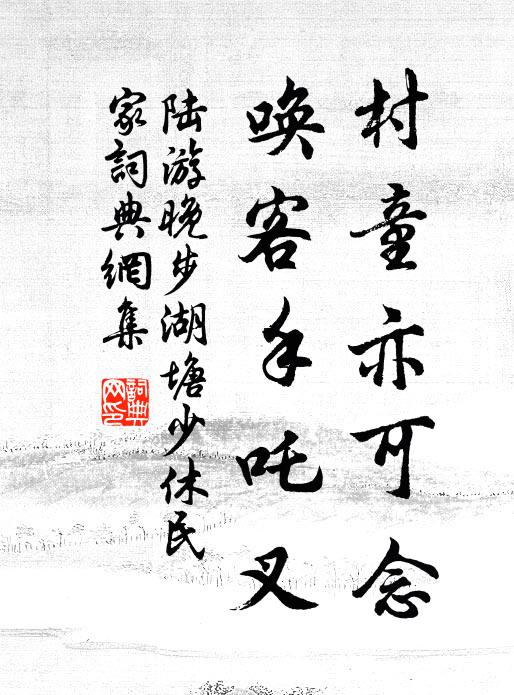 村童亦可念
喚客手吒叉
陆游晚步湖塘少休民
家詞典網集
詞典
网印